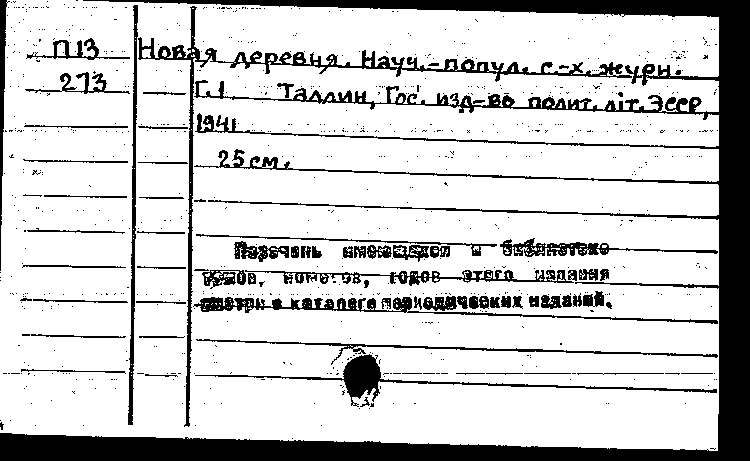 П13 Новая деревня. Науч.-попул. с.-х. журн.
273 Г. 1. Таллин, Гос. изд-во полит. літ. ЭССР,
1941
25 см.
Перечень имеющихся в библиотеке
томов, номеров, годов этого издания
смотри в каталоге периодических изданий.